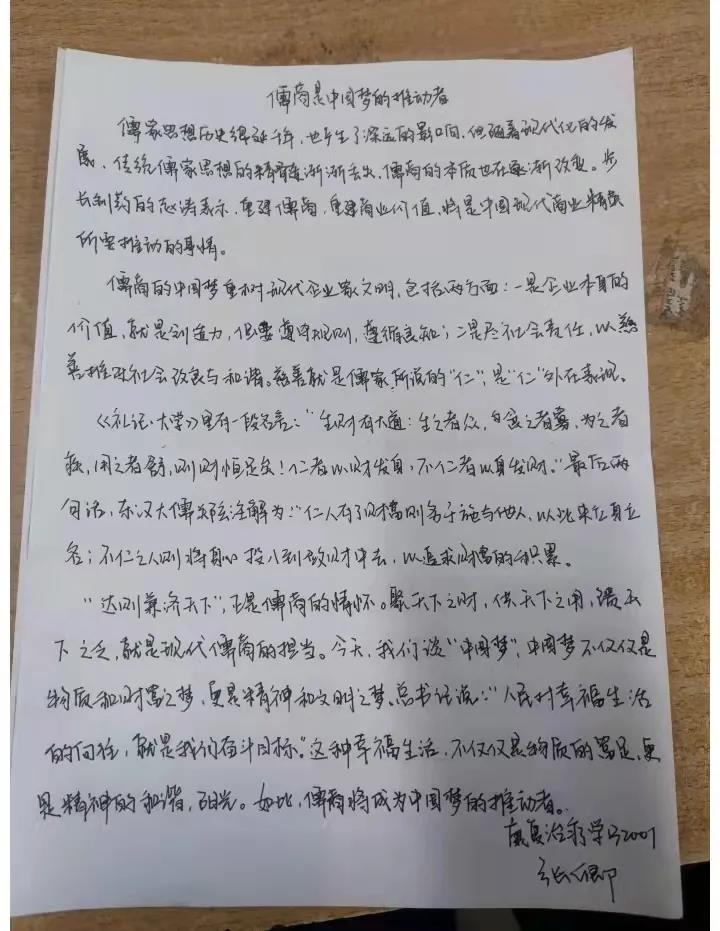 儒商是中国梦的推动者
儒家思想历史绵延千年,也产生了深远的影响,但随着现代化的发
展,传统儒家思想的精髓渐渐丢失,儒商的本质也在逐渐改变。步
长制药的赵涛表示,重建儒商,重建商业价值,将是中国现代商业精英
所要推动的事情。
儒商的中国梦重树现代企业家文明,包括两方面:一是企业本身的
价值,就是创造力,但要遵守规则,遵循良知;二是尽社会责任,以慈
善推动社会改良与和谐。慈善就是儒家所说的“仁”,是“仁”外在表现。
《礼记·大学》里有一段名言:“生财有大道:生之者众,食之者寡,为之者
疾,用之者舒,则财恒足矣!仁者以财发身,不仁者以身发财。”最后两
句话,东汉大儒郑玄注解为:“仁人有了财富则务于施与他人,以此来立身立
名;不仁之人则将身心投入到敛财中去,以追求财富的积累。
“达则兼济天下”,正是儒商的情怀。聚天下之财,供天下之用,济天
下之乏,就是现代儒商的担当。今天,我们谈“中国梦”,中国梦不仅仅是
物质和财富之梦,更是精神和文明之梦。总书记说:“人民对幸福生活
的向往,就是我们奋斗目标。”这种幸福生活,不仅仅是物质的富足,更
是精神的和谐,阳光。如此,儒商将成为中国梦的推动者。
康复治疗学2001